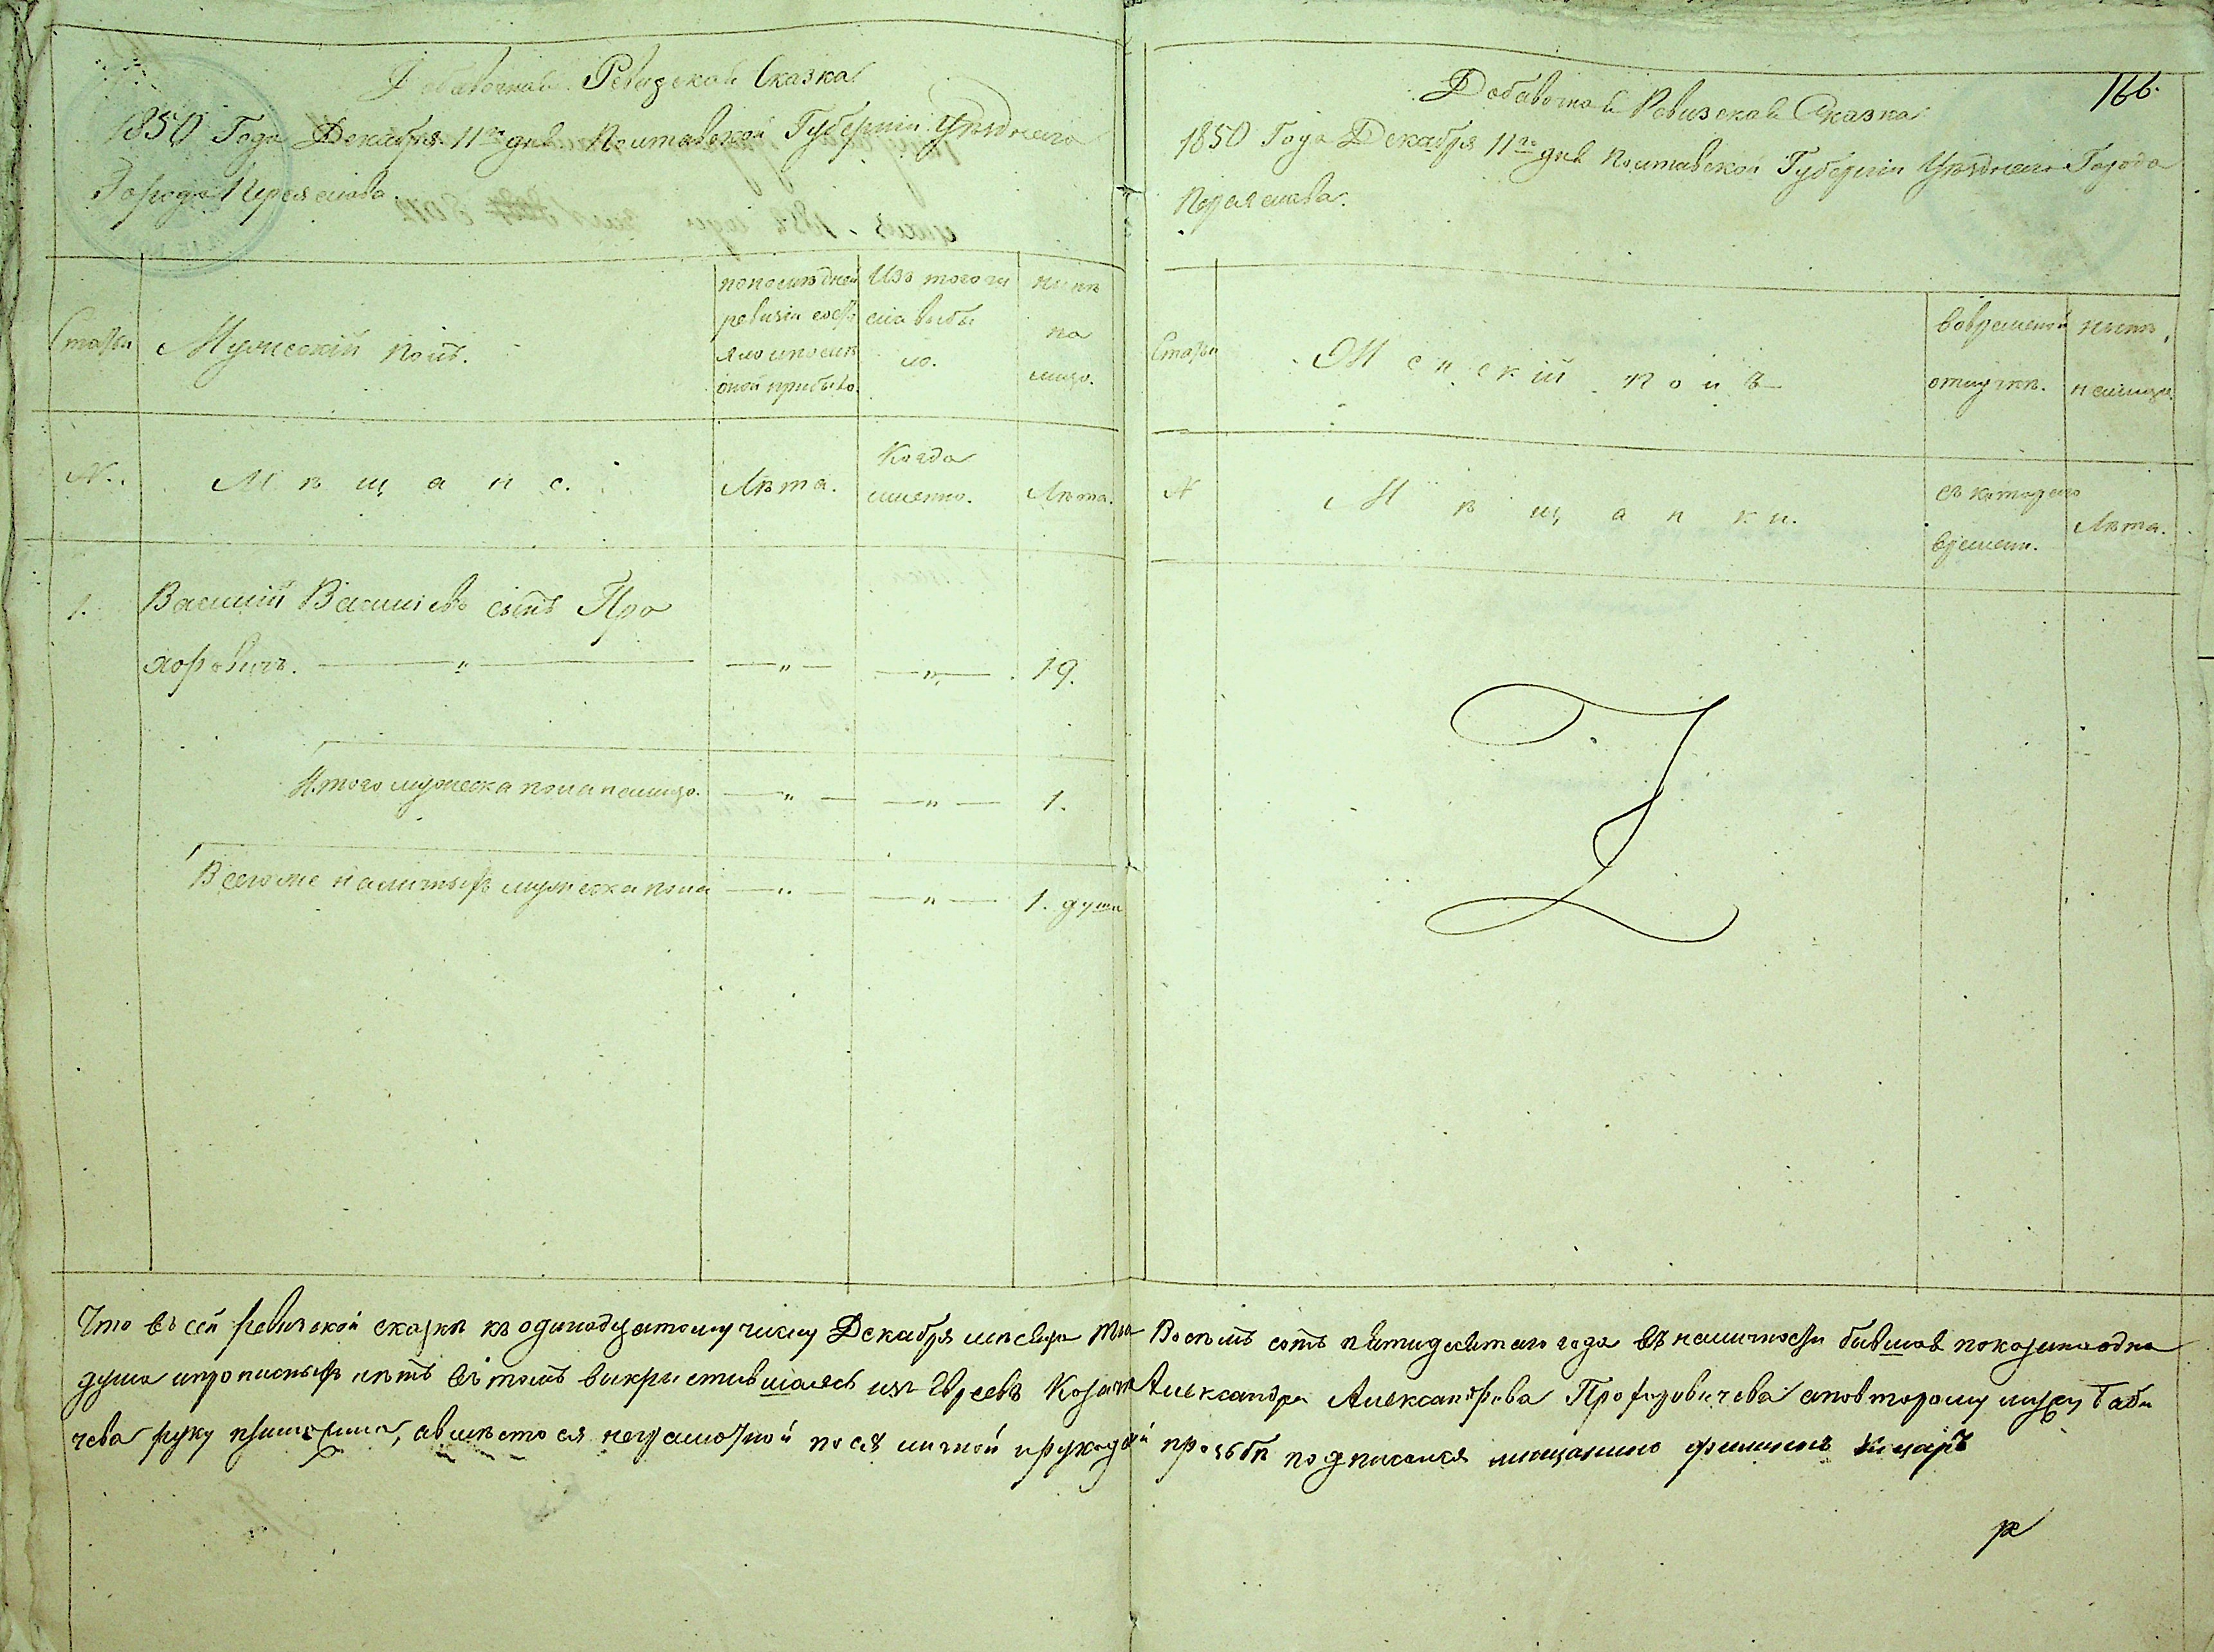 Добавочная Ревизская Сказка
1850 Года Декабря 11го дня Полтавской Губерніи Уѣзднаго
Города Переяслова.
Статьи
Мужескій полъ.
по послѣдней
ревизіи состо
яло и послѣ
оной прибыло.
Изъ того чи
сла выбы
ло.
нынѣ
на
лицо.
N.
Мѣщане.
Лѣта.
Когда
именно.
Лѣта.
1.
Василій Васильевъ сынъ Про
хоровичъ. 19.
Итого мужеска пола налицо. 1.
Всего же наличныхъ мужеска пола 1. душа
166.
Добавочная Ревизская Сказка
1850 Года Декабря 11го дня Полтавской Губерніи Уѣзднаго Города
Переяслава.
Статьи
Женскій полъ
во временной
отлучкѣ.
нынѣ
налицо.
N
Мѣщанки.
съ котораго
времени.
Лѣта.
Что въ сей ревизской сказкѣ къ одинадцатому числу Декабря мѣсяца тыс Восемь сотъ пятидесятаго года въ наличности бывшая показана одна
душа и прописныхъ нѣтъ въ томъ выкрестившаясь изъ Евреевъ Александра Александрова Прохоровичева а по второму мужу Баби
чева руку приложила, а вмѣсто ея неграмотной по ея личной и рукодан й прозьбѣ подписался мещанинъ